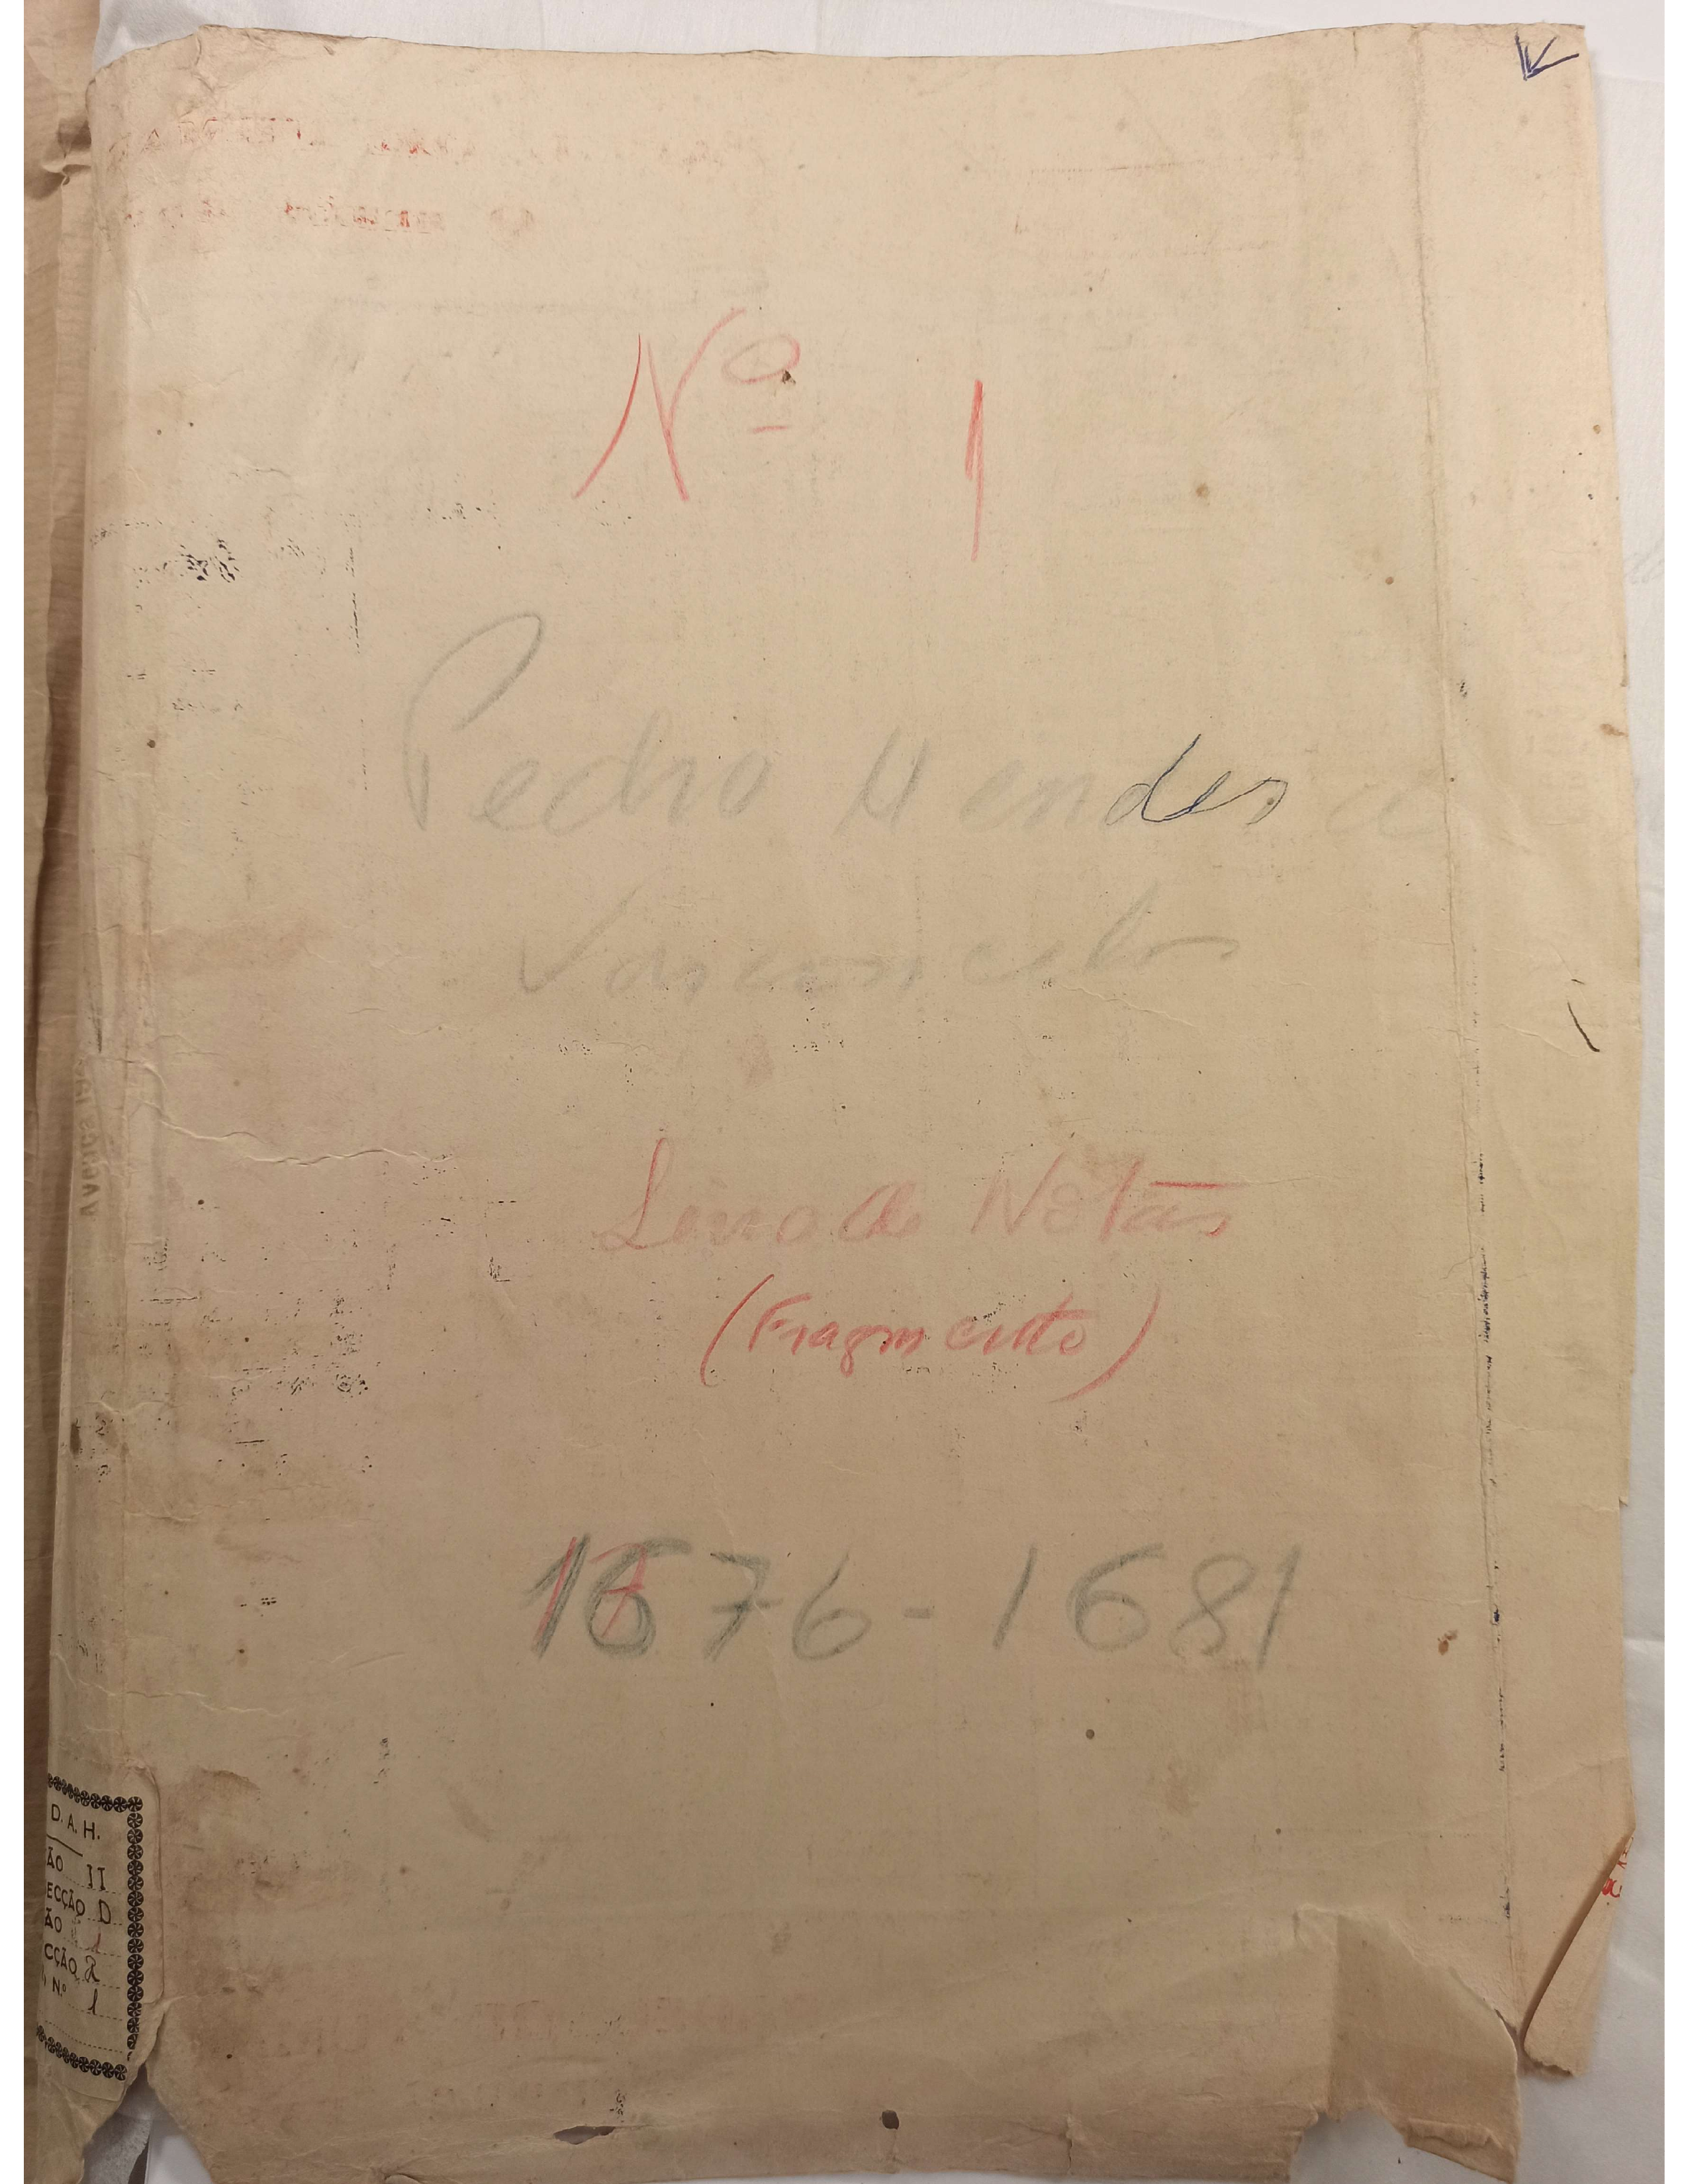 Nº 1
Pedro Mendes
Vasconcelos
Livro de Notas
(Fragmento)
1676-1681
D. A. H.
ÃO II
ECÇÃO D
ÃO
CÇÃO 2
Nº 1